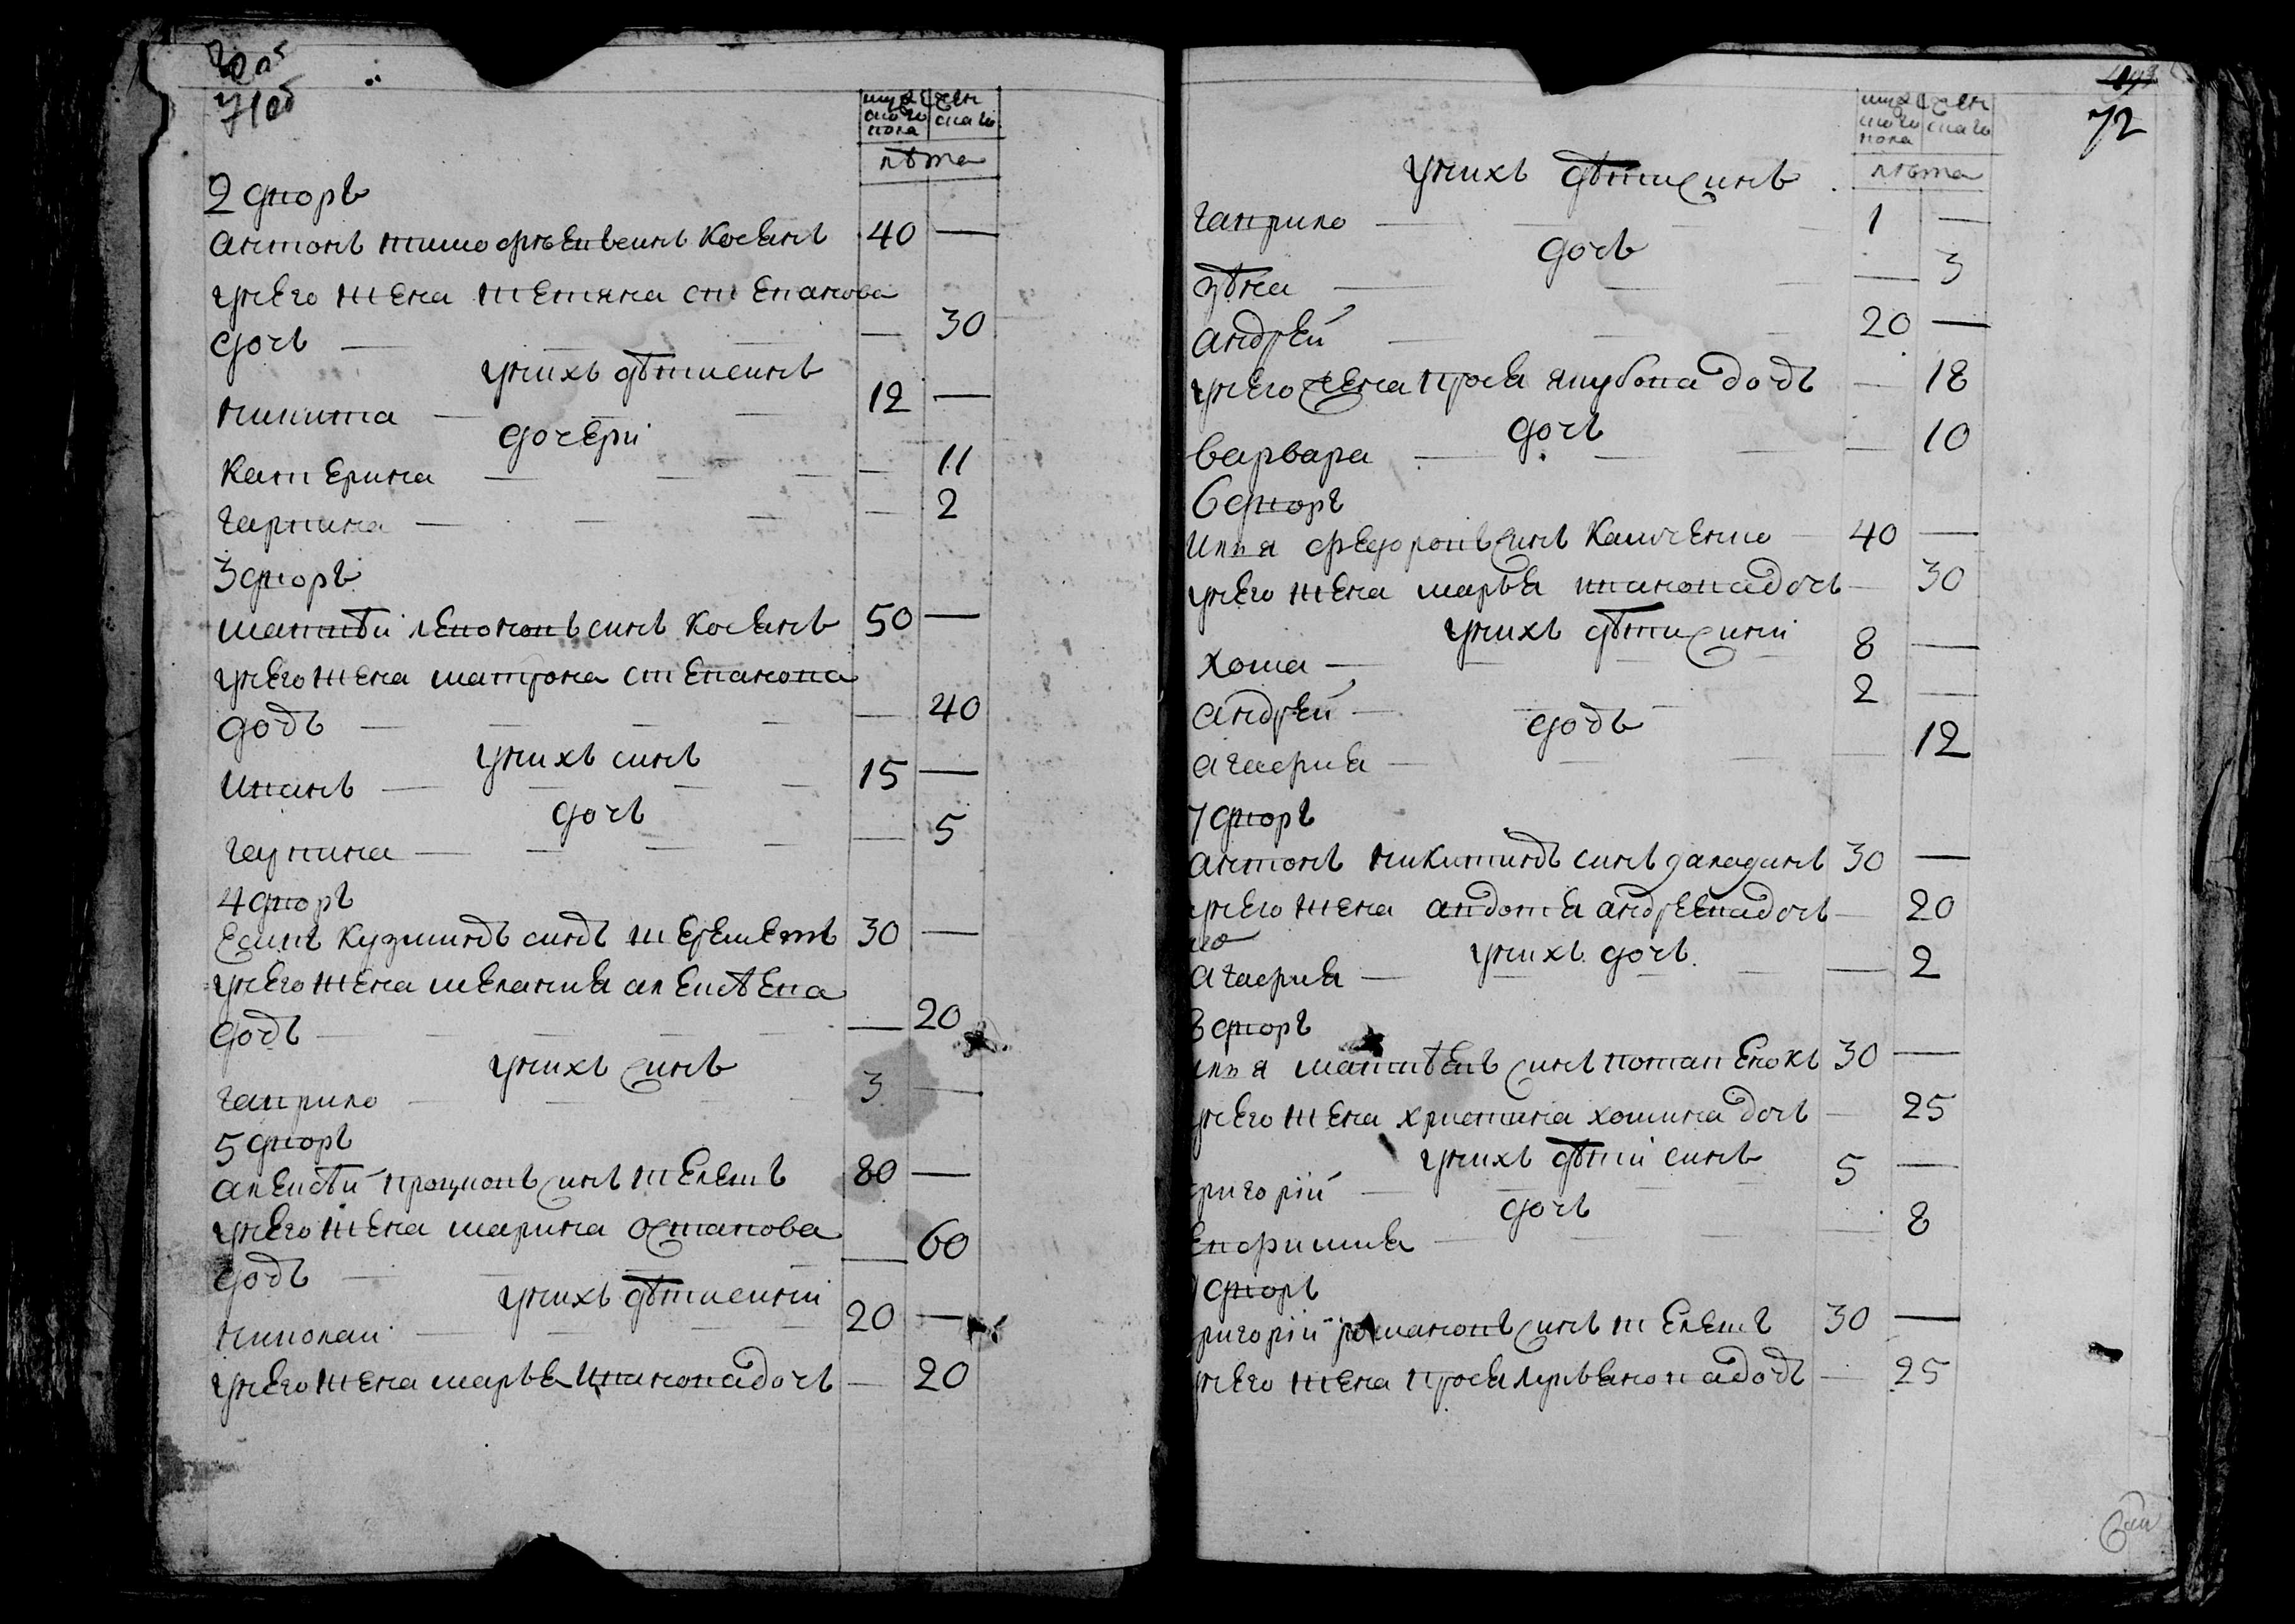 71об
мужского пола
женскаго
лѣта
2 дворъ
антонъ тимофѣевъ синъ косянъ 40 —
унего жена тетяна степанова
дочь — — 30
унихъ дѣти синъ
никита — 12 —
дочери
катерина — — 11
гарпина — — 2
3 дворъ
матвѣй левоновъ синъ косянъ 50 —
унего жена матрона степанова
дочь — — 40
унихъ синъ
иванъ — 15 —
дочь
гарпина — — 5
4 дворъ
есипъ кузминъ синъ терешетъ 30 —
унего жена мелания алексѣева
дочь — — 20
унихъ синъ
гаврило — 3 —
5 дворъ
алексѣй процковъ синъ телешъ 80 —
унего жена марина остапова
дочь — — 60
унихъ дѣти сини
николай — 20 —
унего жена марья иванова дочь — 20
72
мужского пола
женскаго
лѣта
унихъ дѣти синъ
гаврило — 1 —
дочь
— 3
андрей — 20 —
унего жена прося якубова дочь — 18
дочь
варвара — — 10
6 дворъ
илия федоровъ синъ каличенко 40 —
унего жена марья иванова дочь — 30
унихъ дѣти сини
хома — 8 —
андрей — 2 —
дочь
агафия — — 12
7 дворъ
антонъ никитинъ синъ галадинъ 30 —
унего жена авдотя андреева дочь — 20
унихъ дочь
агафия — — 2
8 дворъ
илия матвѣевъ синъ потапенокъ 30 —
унего жена христина хомина дочь — 25
унихъ дѣти синъ
григорій — 5 —
дочь
евфимия — — 8
дворъ
григорій романовъ синъ телешъ 30 —
унего жена прося лукянова дочь — 25